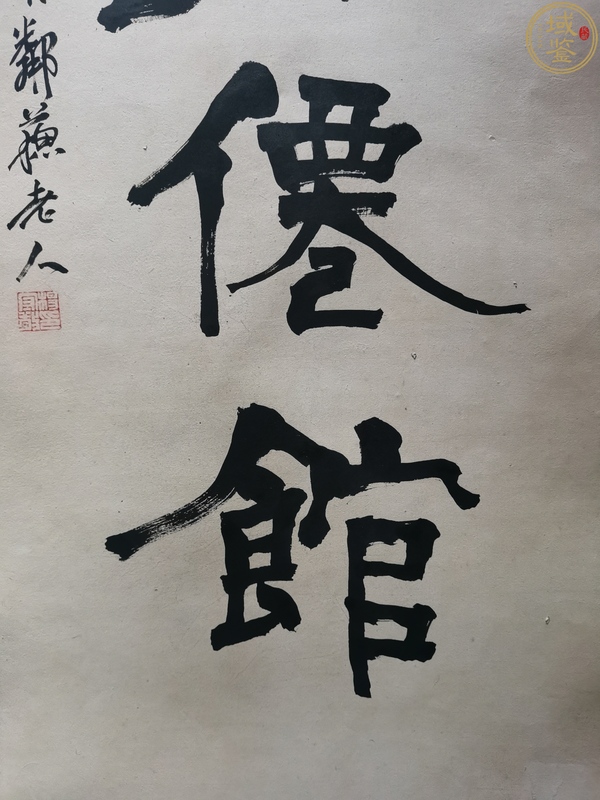 僊館
鄰蘓老人
域鉴